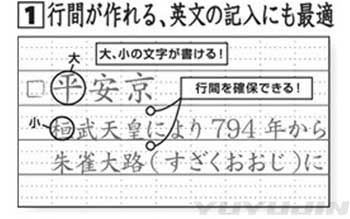 1 行間が作れる、英文の記入にも最適
大 大、小の文字が書ける!
□平安京 行間を確保できる!
小 桓武天皇により794年から
朱雀大路(すざくおおじ)に
YUYUJIN